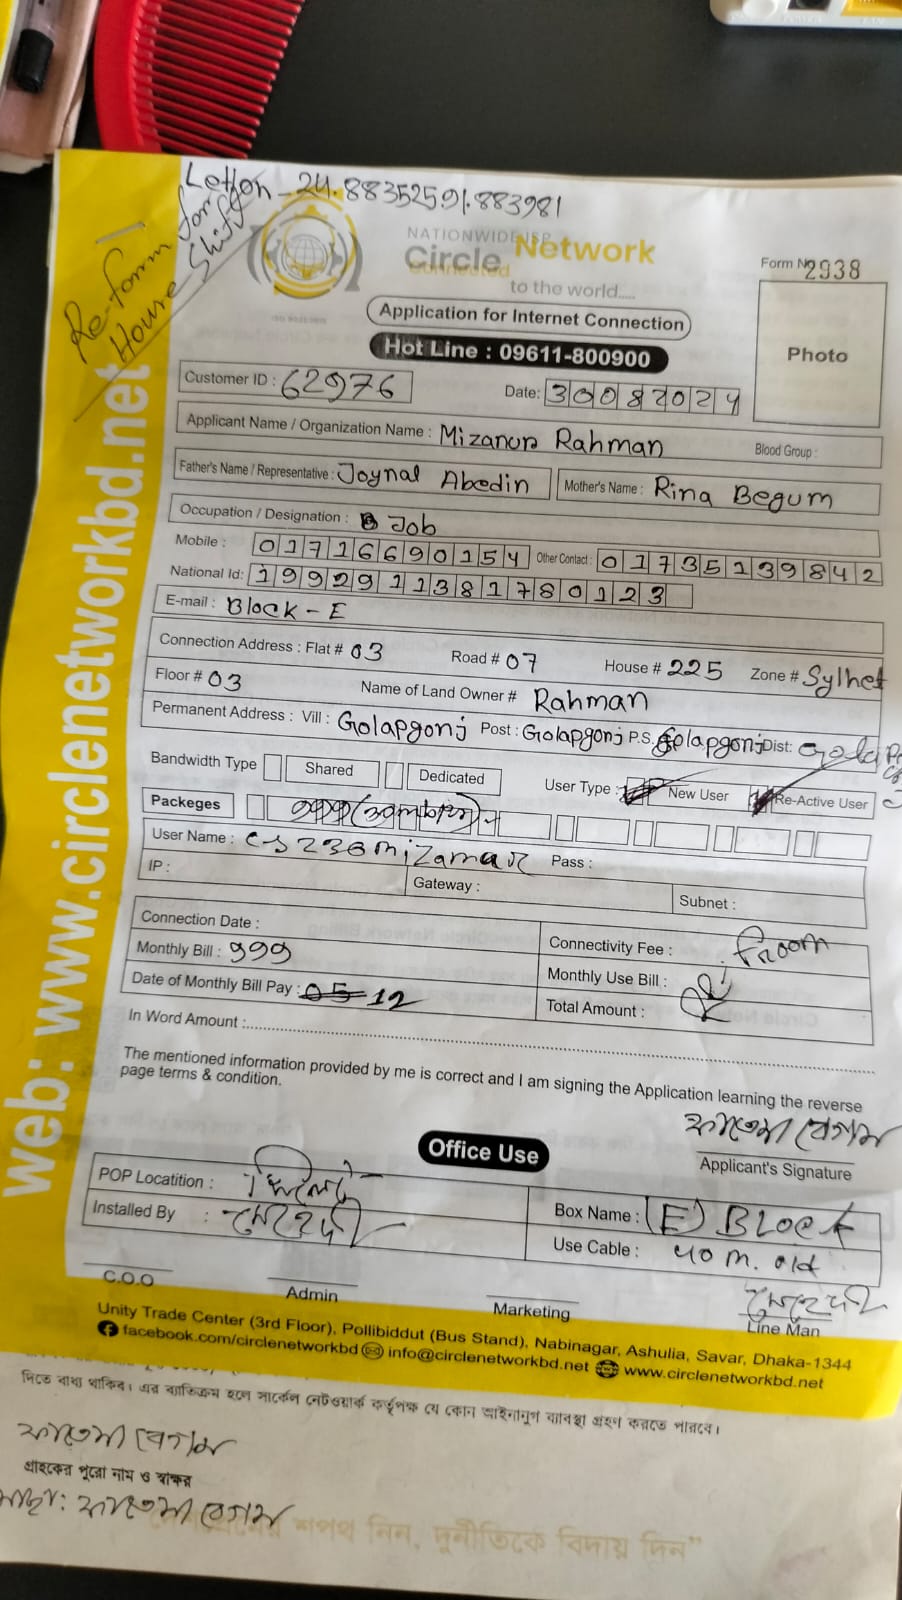 Re-form for
House Shift
NATIONWIDE ISP
Circle Network
Connected
to the world.....
Form No 2938
Application for Internet Connection
Hot Line : 09611-800900
Photo
Customer ID : 62976
Date: 30082024
Applicant Name / Organization Name : Mizanur Rahman
Blood Group :
Father's Name / Representative : Joynal Abedin
Mother's Name : Rina Begum
Occupation / Designation : Job
Mobile : 01716690154 Other Contact : 01735139842
National Id: 1992911381780123
E-mail : Block - E
Connection Address : Flat # 03 Road # 07 House # 225 Zone # Sylhet
Floor # 03 Name of Land Owner # Rahman
Permanent Address : Vill : Golapgonj Post : Golapgonj P.S. Golapgonj Dist:
Bandwidth Type Shared Dedicated User Type : New User Re-Active User
Packeges
User Name : Pass :
IP : Gateway : Subnet :
Connection Date :
Connectivity Fee :
Monthly Bill : 999
Monthly Use Bill :
Date of Monthly Bill Pay : 05 12
Total Amount :
In Word Amount :
The mentioned information provided by me is correct and I am signing the Application learning the reverse
page terms & condition.
ফাতেমা বেগম
Applicant's Signature
Office Use
POP Locatition :
Box Name : (E) BLock
Installed By : মেহেদী
Use Cable : 40 m. old
মেহেদী
C.O.O Admin Marketing Line Man
Unity Trade Center (3rd Floor), Pollibiddut (Bus Stand), Nabinagar, Ashulia, Savar, Dhaka-1344
facebook.com/circlenetworkbd info@circlenetworkbd.net www.circlenetworkbd.net
web: www.circlenetworkbd.net
দিতে বাধ্য থাকিব। এর ব্যতিক্রম হলে সার্কেল নেটওয়ার্ক কর্তৃপক্ষ যে কোন আইনানুগ ব্যবস্থা গ্রহণ করতে পারবে।
ফাতেমা বেগম
গ্রাহকের পুরো নাম ও স্বাক্ষর
ফাতেমা বেগম
শপথ নিন, দুর্নীতিকে বিদায় দিন"